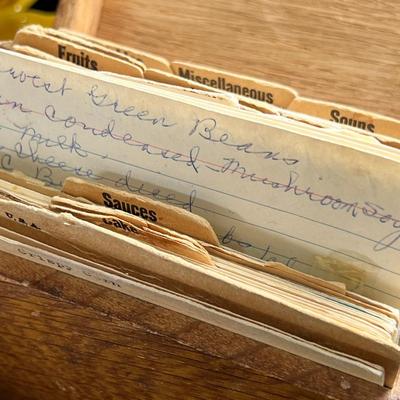 Fruits
Miscellaneous
Soups
west Green Beans
condensed Mushroom Soup
milk
Cheese diced
Sauces
Cake
U.S.A.
Crispy